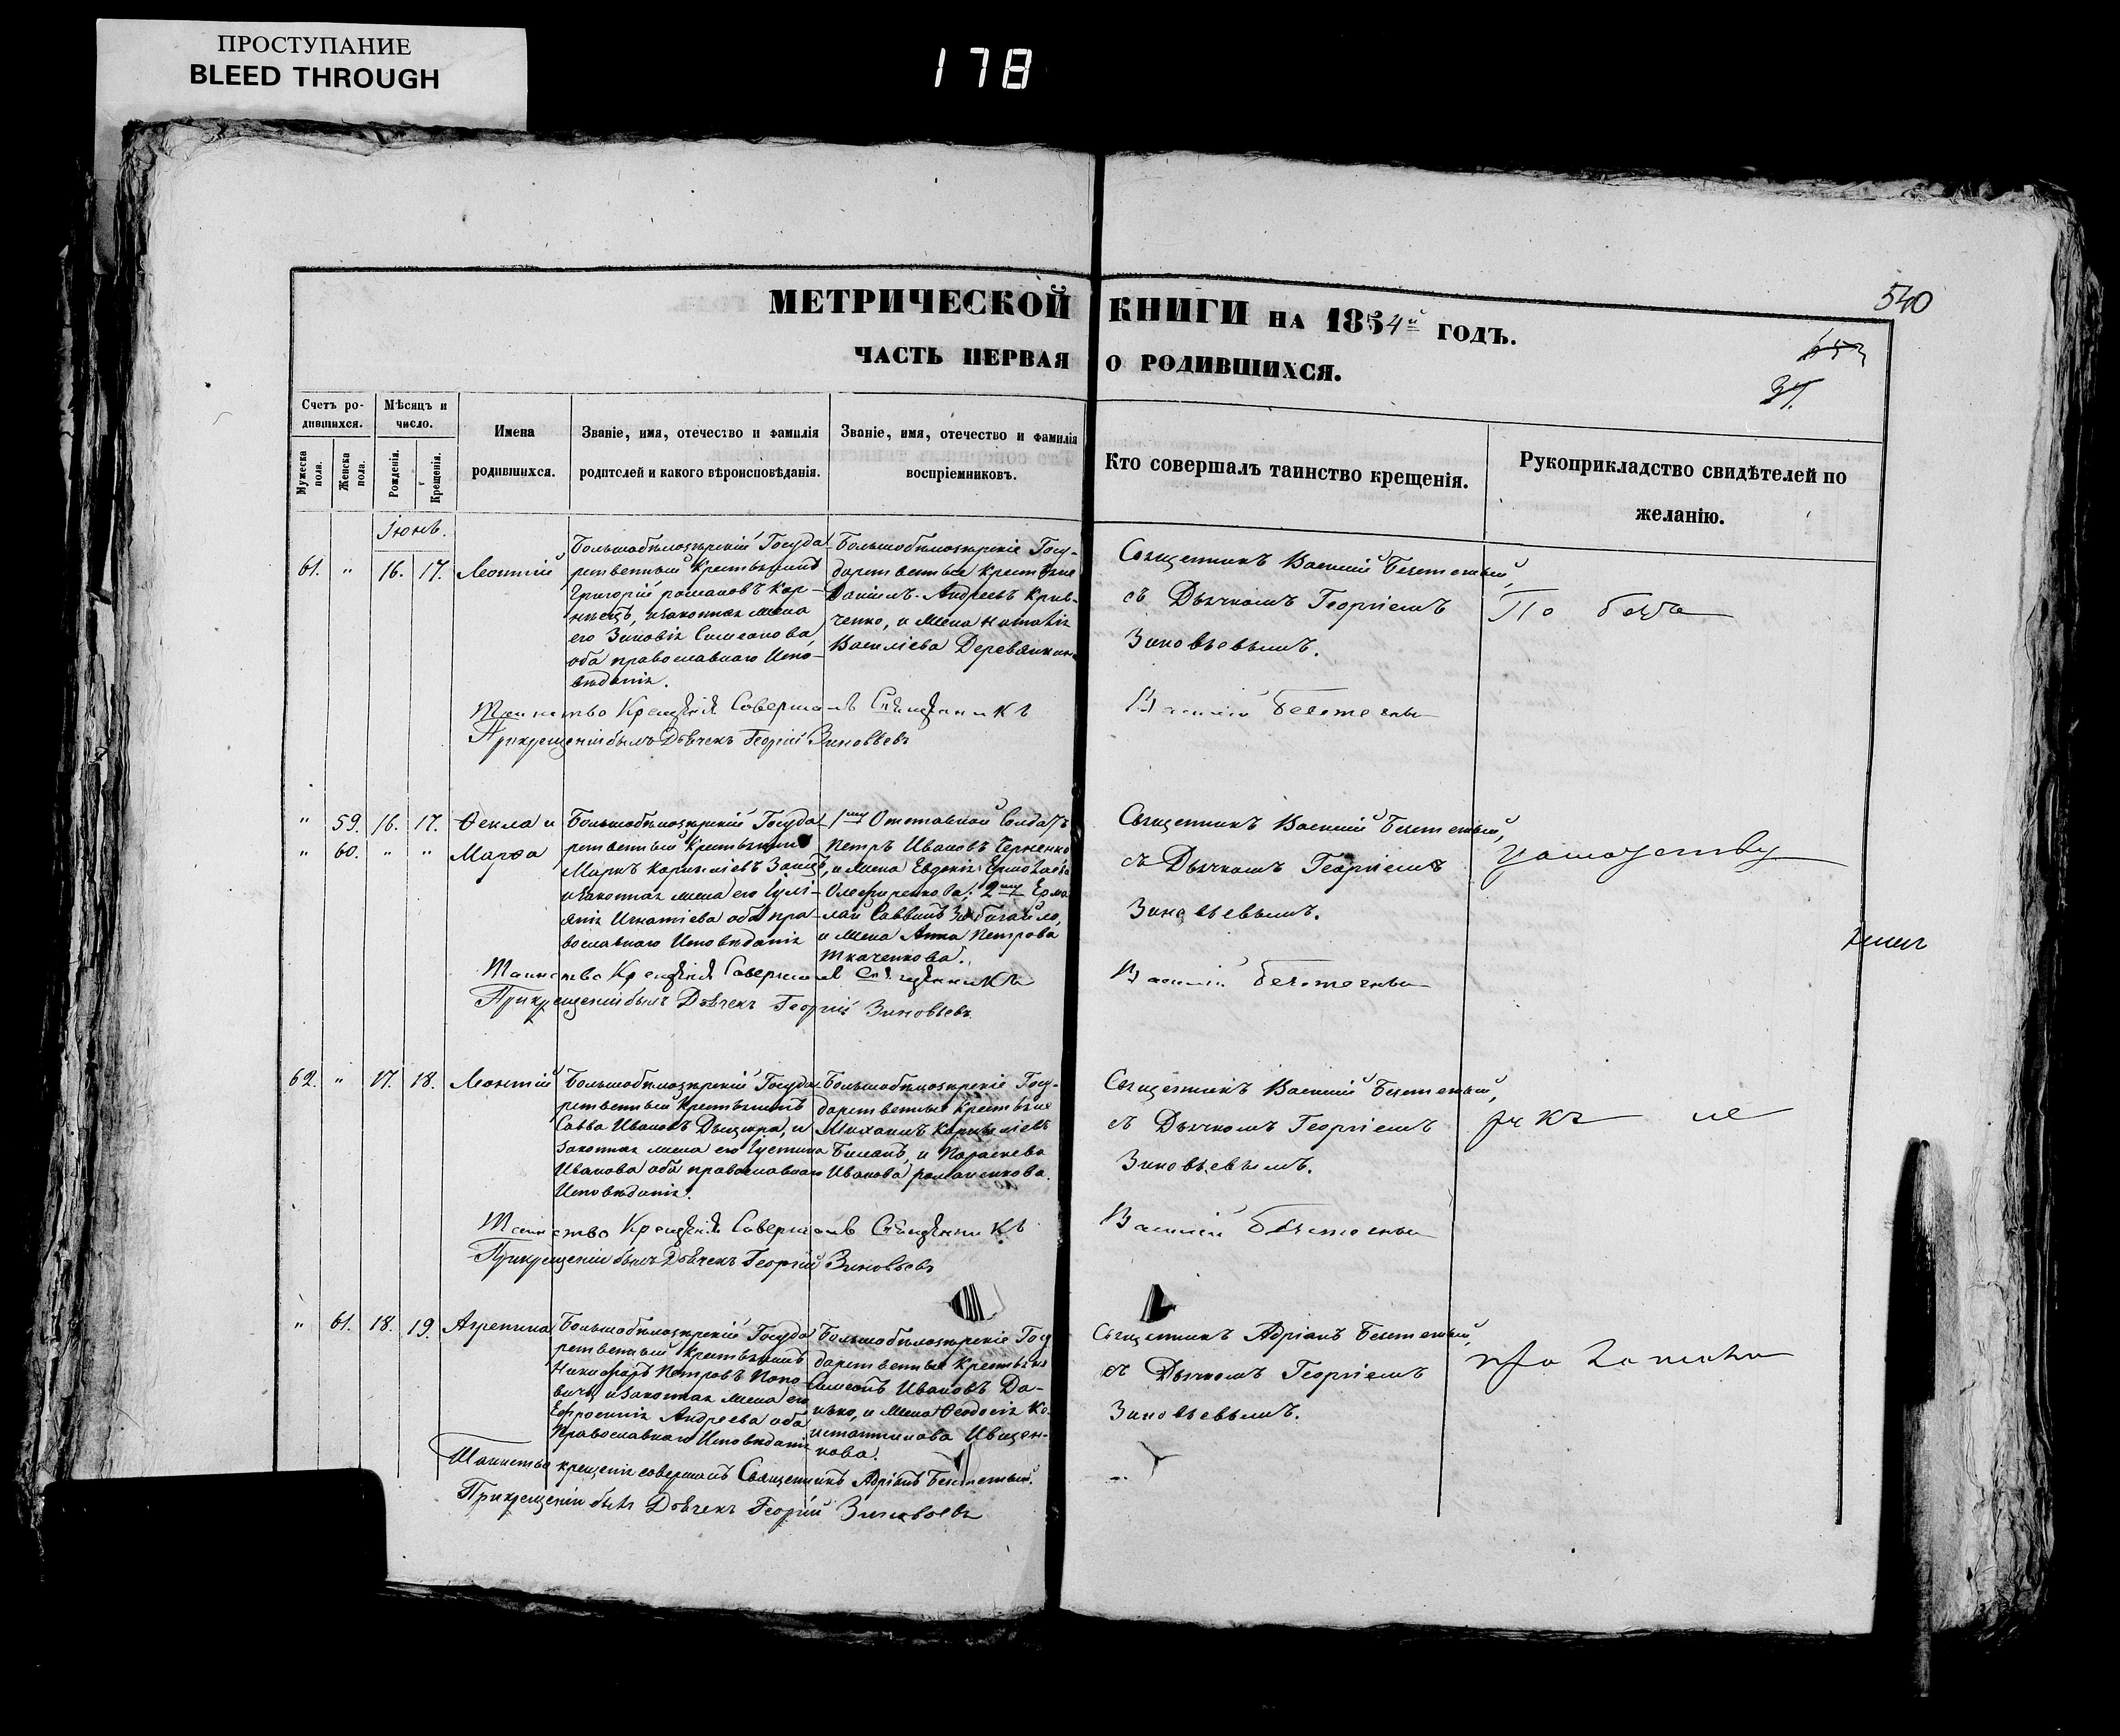 ПРОСТУПАНИЕ
BLEED THROUGH
178
МЕТРИЧЕСКОЙ КНИГИ НА 1854й ГОДЪ.
ЧАСТЬ ПЕРВАЯ О РОДИВШИХСЯ.
540
Счетъ ро-
дившихся.
Мужеска
пола.
Женска
пола.
Мѣсяцъ и
число.
Рожденія.
Крещенія.
Имена
родившихся.
Званіе, имя, отечество и фамилія
родителей и какого вѣроисповѣданія.
Званіе, имя, отечество и фамилія
воспріемниковъ.
Кто совершалъ таинство крещенія.
Рукоприкладство свидѣтелей по
желанію.
Іюнь.
61. " 16. 17. Леонтій
Большобѣлозѣрскій Госуда-
рственный Крестьянинъ
Григорій романовъ Кор-
нѣецъ, изаконная жена
его Зиновія Симеонова,
оба православнаго Испо-
вѣданія.
Большобѣлозѣрскіе Госу-
дарственные крестьяне
Даніилъ Андреевъ Крив-
ченко, и жена
Василіева Деревянкина
Священникъ Василій
съ Дьячкомъ Георгіемъ
Зиновьевымъ.
По
Таинство Крещенія Совершалъ Священникъ Василій
Прикрещеніи былъ Дьячекъ Георгій Зиновьевъ
" 59. 16. 17. Ѳекла и
" 60. " " Марѳа
Большобѣлозѣрскій Госуда-
рственный Крестьянинъ
Маркъ Корниліевъ Заяцъ,
изаконная жена его Іулі-
анія Игнатіева оба пра-
вославнаго Исповѣданія
1му Отставной Солдатъ
Петръ Ивановъ Черненко
и жена Евдокія Ермолаева
2му Ермо-
лай Саввинъ
и жена Анна Петрова
Ткаченкова.
Священникъ Василій
съ Дьячкомъ Георгіемъ
Зиновьевымъ.
Таинство Крещенія Совершалъ Священникъ Василій
Прикрещеніи былъ Дьячекъ Георгій Зиновьевъ
62. " 17. 18. Леонтій
Большобѣлозѣрскій Госуда-
рственный Крестьянинъ
Савва Ивановъ и
Законная жена его Іустина
Иванова оба православнаго
Исповѣданія.
Большобѣлозѣрскіе Госу-
дарственные крестьяне
Михаилъ Корниліевъ
Биланъ, и Параскева
Иванова романенкова.
Священникъ Василій
съ Дьячкомъ Георгіемъ
Зиновьевымъ.
Таинство Крещенія Совершалъ Священникъ Василій
Прикрещеніи былъ Дьячекъ Георгій Зиновьевъ
" 61. 18. 19. Агрепина
Большобѣлозѣрскій Госуда-
рственный Крестьянинъ
Никифоръ Петровъ Попо-
вичъ, изаконная жена его
Ефросинія Андреева оба
Православнаго Исповѣданія
Большобѣлозѣрскіе Госу-
дарственные Крестьяне
Симеонъ Ивановъ Да-
цько, и жена Ѳеодосія Ко-
нстантинова Ивщен-
кова.
Священникъ Адріанъ
съ Дьячкомъ Георгіемъ
Зиновьевымъ.
Таинство крещенія совершалъ Священникъ Адріанъ
Прикрещеніи былъ Дьячекъ Георгій Зиновьевъ